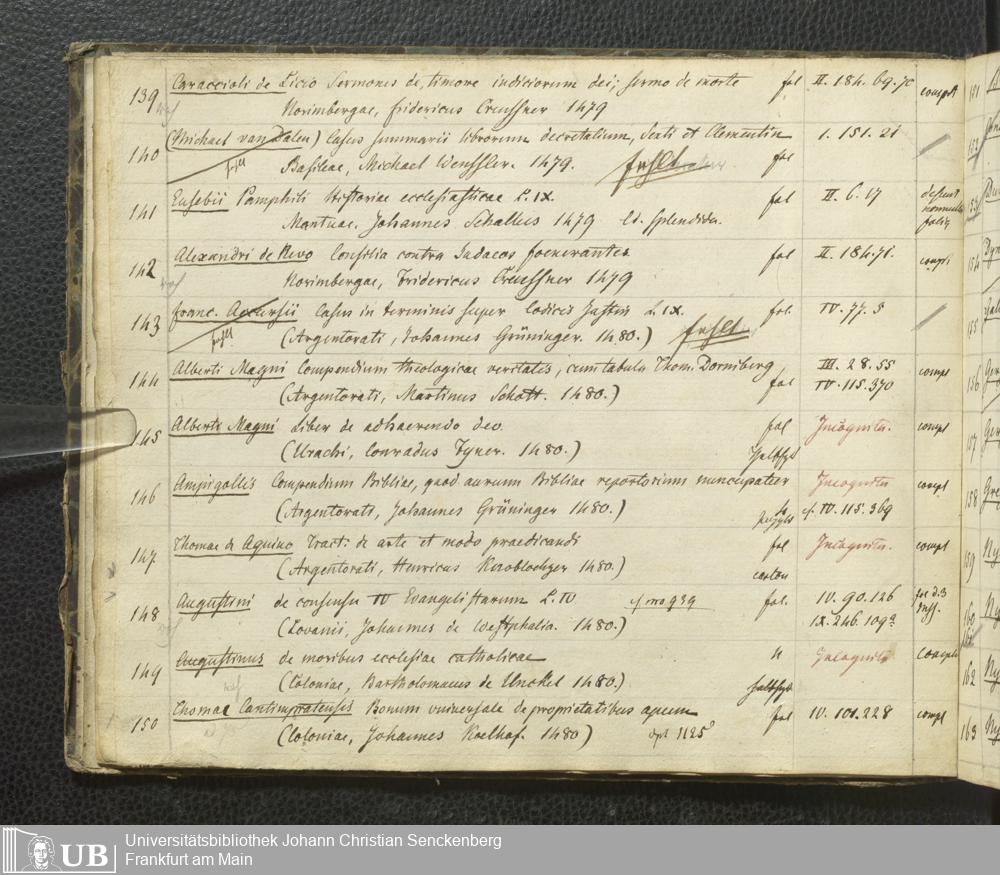 139 Caraccioli de Licio Sermones de timore iudiciorum dei; sermo de morte fol II. 184. 69. 70 complt
Norimbergae, fridericus Creussner 1479
140 (Michael van Dalen) Casus summarii librorum decretalium, Sexti et Clementin 1. 151. 21
fehlt Basileae, Michael Wenssler. 1479. fehlt fol
141 Eusebii Pamphili Historiae ecclesiasticae L. IX. fol II. 6. 17 desunt nonnulla folia
Mantuae. Johannes Schallus 1479 Ed. splendida.
142 Alexandri de Nevo Consilia contra Iudaeos foenerantes fol II. 184. 71. compl
Norimbergae, Fridericus Creussner 1479
143 franc. Accursii Casus in terminis super Codicis Justin L IX. fol. IV. 77. 5
fehlt (Argentorati, Johannes Grüninger. 1480.) fehlt
144 Alberti Magni Compendium theologicae veritatis, cum tabula Thom. Dorniberg III. 28. 55 compl
(Argentorati, Martinus Schott. 1480.) fol IV. 115. 370
145 Alberti Magni Liber de adhaerendo deo. fol Incognita. compl
(Urachi, Conradus Fyner. 1480.)
146 Ampigollis Compendium Bibliae, quod aurum Bibliae repertorium nuncupatur Incognita compl
(Argentorati, Johannes Grüninger 1480.) cf. IV. 115. 369
147 Thomae de Aquino Tract. de arte et modo praedicandi fol Incognita. compl
(Argentorati, Henricus Knoblochzer 1480.) carton
148 Augustini de consensu IV Evangelistarum L. IV cf no 939 fol. IV. 90. 126
(Lovanii, Johannes de Westphalia. 1480.) IX. 246. 109a
149 Augustinus de moribus ecclesiae catholicae Incognita compl
(Coloniae, Bartholomaeus de Unckel 1480.)
150 Thomae Cantimpratensis Bonum universale de proprietatibus apum fol IV. 101. 228 compl
(Coloniae, Johannes Koelhof. 1480) dpl 1125
151
152
153
154
155
156
157
158
159
160
161
162
163
UB Universitätsbibliothek Johann Christian Senckenberg
Frankfurt am Main